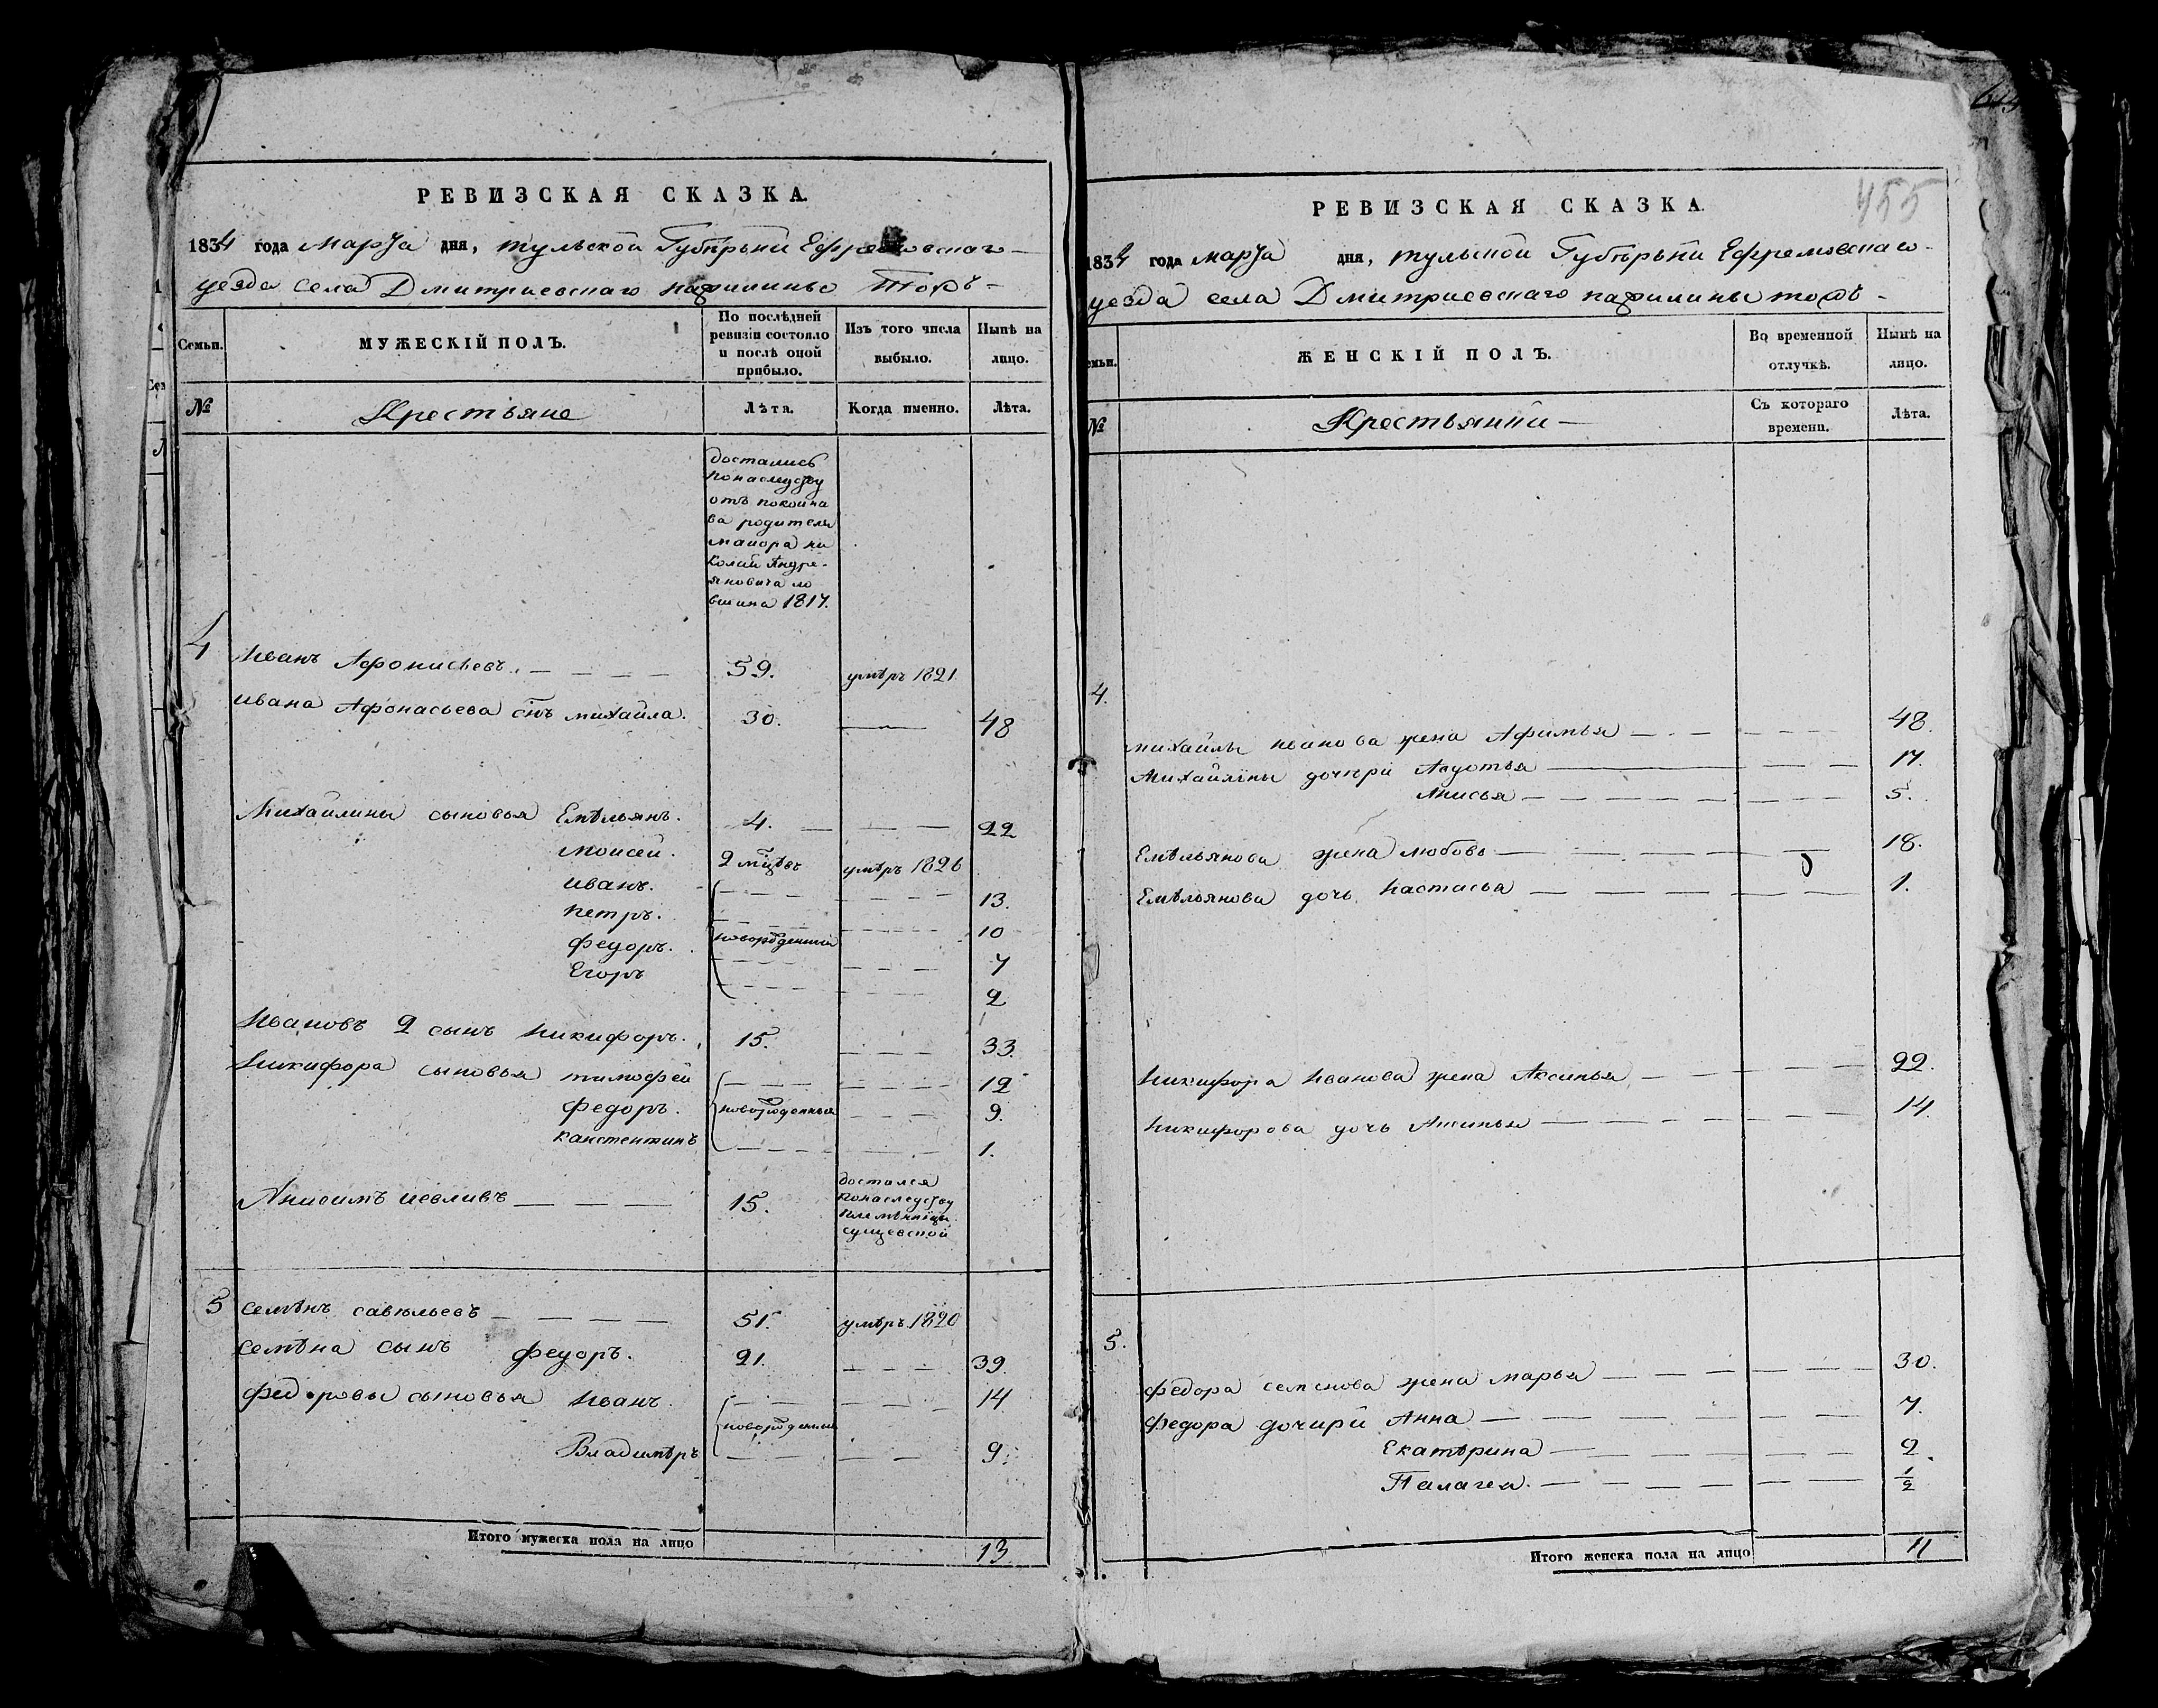 РЕВИЗСКАЯ СКАЗКА.
1834 года марта дня, тульской Губѣрьни Ефремовскаго
уезда села Дмитриевскаго тожъ
Семьи.
МУЖЕСКІЙ ПОЛЪ.
По послѣдней ревизіи состояло и послѣ оной прибыло.
Изъ того числа выбыло.
Нынѣ на лицо.
№
Крестьяне
Лѣта.
Когда именно.
Лѣта.
достались
понаследству
отъ покойна
ва родителя
маиора ни
колай Андре-
яновича ло
вшина 1817.
4
Иванъ Афонасьевъ.
59.
умѣръ 1821
Ивана Афонасьева снъ михайла.
30.
48
Михайлины сыновья Емѣльянъ.
4.
22
Моисей.
2 мцѣвъ
умѣръ 1826
Иванъ.
13.
петръ.
10
федоръ.
новорожденныи
7
Егоръ
2
Ивановъ 2 сынъ Никифоръ.
15.
33.
Никифора сыновья тимофей
12
федоръ.
новорожденныи
9.
канстентинъ
1.
Анисимъ иевливъ
15.
достался
понаследству
племѣнницы
сущевской
5
семѣнъ савѣльевъ
51.
умѣръ 1820
семѣна сынъ федоръ.
21.
39.
федоровы сыновья Иванъ.
14
новорожденныи
Владимѣръ
9.
Итого мужеска пола на лицо
13
455
РЕВИЗСКАЯ СКАЗКА.
1834 года марта дня, тульской Губѣрьни Ефремовскаго
уезда села Дмитриевскаго тожъ
Семьи.
ЖЕНСКІЙ ПОЛЪ.
Во временной отлучкѣ.
Нынѣ на лицо.
№
Крестьянки
Съ котораго времени.
Лѣта.
4.
михайлы иванова жена Афимья
48.
Михайлины дочери Авдотья
17.
Анисья
5.
Емѣльянова жена любовь
18.
Емѣльянова дочь Настасья
1.
Никифора Иванова жена Аксинья
22.
Никифорова дочь Аксинья
14.
5.
Федора семенова жена марья
30.
Федора дочири Анна
7.
Екатѣрина
2.
Палагея.
1/2
Итого женска пола на лицо
11